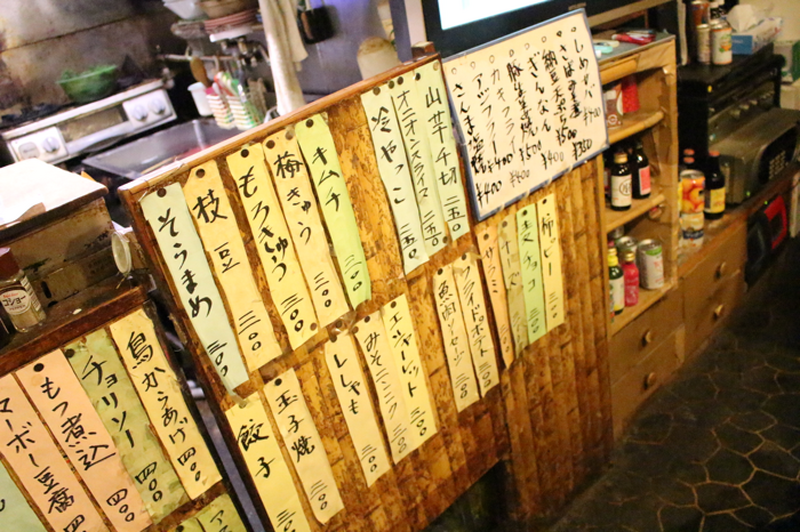 しめサバ ¥400
¥350
納豆天ぷら ¥500
ぎんなん ¥400
カキフライ ¥400
アジフライ ¥400
さんま塩焼 ¥400
山芋千切 二五〇
オニオンスライス 二五〇
冷やっこ 二五〇
キムチ 三〇〇
梅きゅう 三〇〇
もろきゅう 三〇〇
枝豆 三〇〇
そらまめ 三〇〇
柿ピー
麦チョコ
チーズ
サラミ
フライドポテト 三〇〇
魚肉ソーセージ 三〇〇
エシャレット 三〇〇
みそニンニク 三〇〇
ししゃも 三〇〇
玉子焼 三〇〇
餃子 三〇〇
鳥からあげ 四〇〇
チョリソー 四〇〇
もつ煮込 四〇〇
マーボー豆腐 四〇
コショー